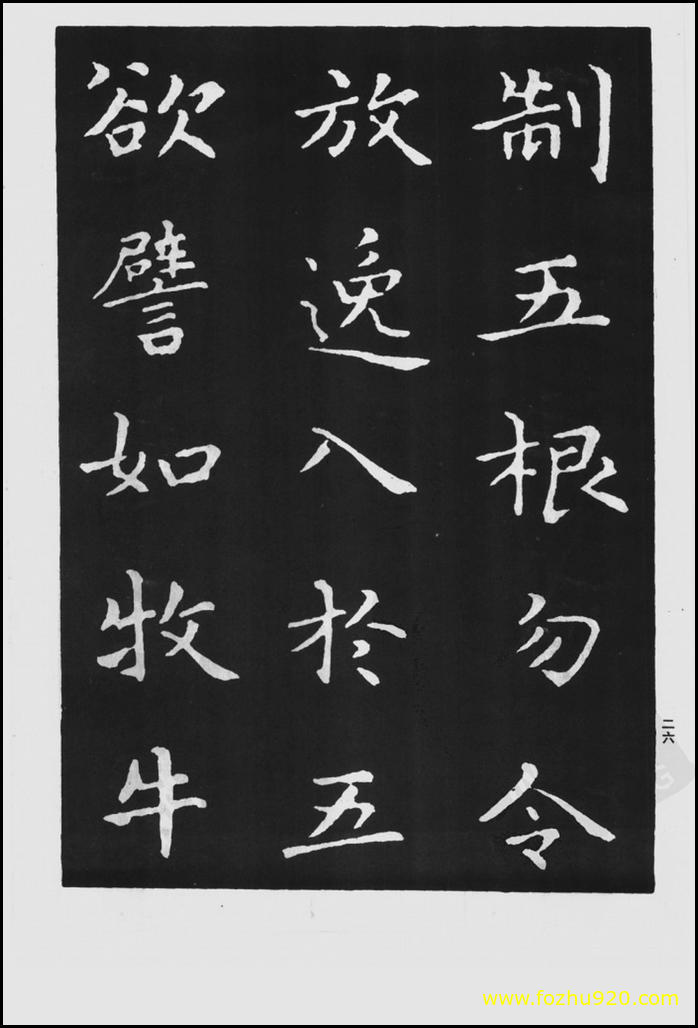 制五根勿令
放逸入於五
欲譬如牧牛
二六
www.fozhu920.com